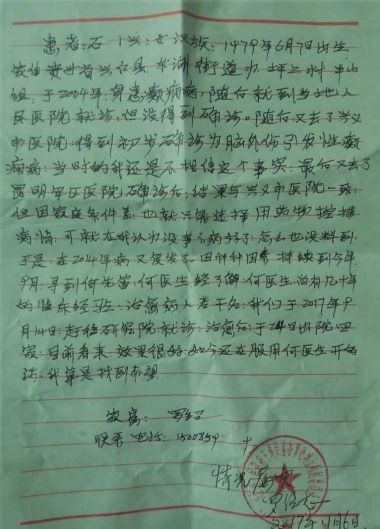 患者：石 兴：女汉族：1979年6月7日出生
家住贵州省兴仁县 街道办 坪上村
组，于2004年，身患癫痫病，随后就到当地人
民医院就诊，但没得到确诊。随后又去了兴义
市医院：得到初步确诊为脑外伤引发性癫
痫病：当时的我还是不相信这个事实：最后又去了
昆明军区医院确诊后：结果与兴义市医院一致：
但因家庭条件差：也就只能选择用药物控制
病情：可就在我认为没事了病好了：怎么也没料到
于是：在2014年病又复发了因种种因素
9月：寻到何先富：何医生经了解：何医生尚有几十年
的临床经验：治愈病人若干名：我们于2017年9
月14日去 研究院就诊：治愈后：于24日出院回
家：目前看来：效果很好 还在服用何医生开的
药。我算是找到希望
家属：
联系电话：1500859
情况属实
2017年11月6日